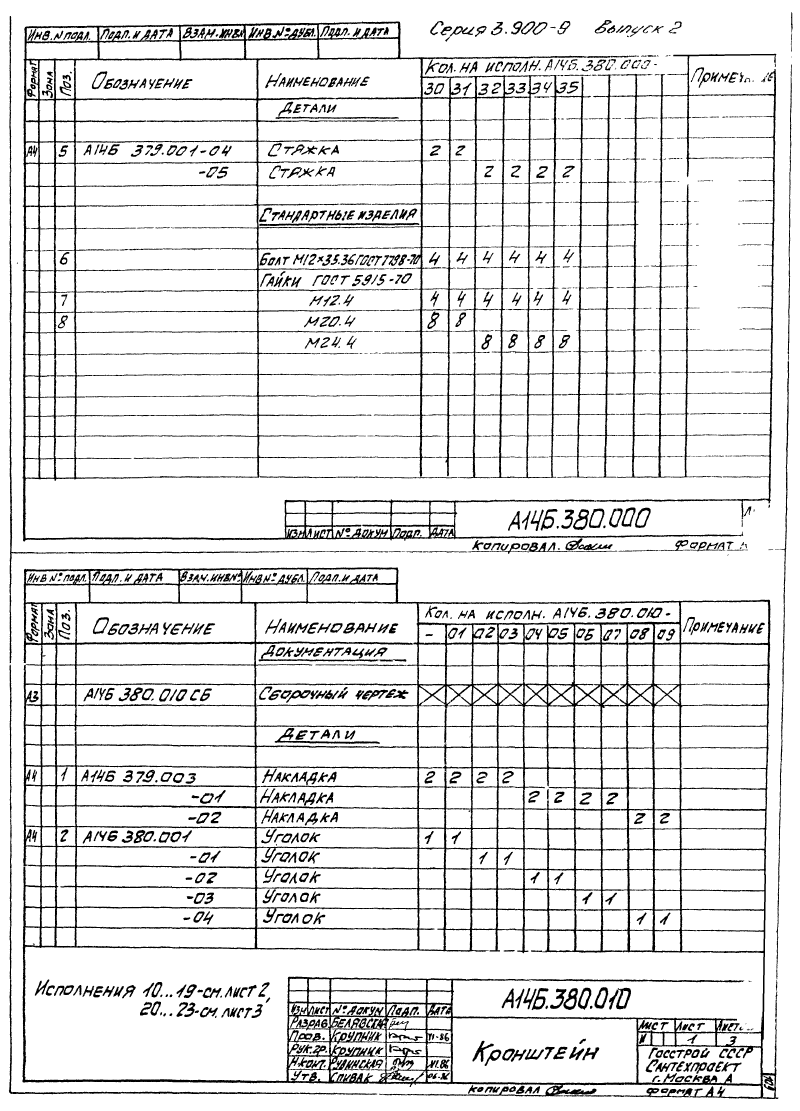 Серия 3.900-9 Выпуск 2
Инв.№ подл. Подп. и дата Взам. инв.№ Инв.№ дубл. Подп. и дата
Формат Зона Поз. Обозначение Наименование Кол. на исполн. А14Б.380.000-
30 31 32 33 34 35
Детали
А4 5 А14Б 379.001-04 Стяжка 2 2
-05 Стяжка 2 2 2 2
Стандартные изделия
6 Болт М12×35.36 ГОСТ 7798-70 4 4 4 4 4 4
Гайки ГОСТ 5915-70
7 М12.4 4 4 4 4 4 4
8 М20.4 8 8
М24.4 8 8 8 8
А14Б.380.000
Изм Лист № докум Подп. Дата
Копировал. Формат
Инв № подл. Подп. и дата Взам. инв№ Инв № дубл. Подп. и дата
Формат Зона Поз. Обозначение Наименование Кол. на исполн. А14Б.380.010- Примечание
- 01 02 03 04 05 06 07 08 09
Документация
А3 А14Б 380.010 СБ Сборочный чертеж
Детали
А4 1 А14Б 379.003 Накладка 2 2 2 2
-01 Накладка 2 2 2 2
-02 Накладка 2 2
А4 2 А14Б 380.001 Уголок 1 1
-01 Уголок 1 1
-02 Уголок 1 1
-03 Уголок 1 1
-04 Уголок 1 1
Исполнения 10...19-см. лист 2,
20...23-см. лист 3
А14Б.380.010
Изм Лист № докум Подп. Дата
Разраб Белявская
Пров. Крупник VI-86
Рук. гр. Крупник
Н.конт. Рудинская VI.86
Утв. Спивак 06.86
Кронштейн
Лист Лист
И 1 3
Госстрой СССР
Сантехпроект
г. Москва А
Копировал Формат А4